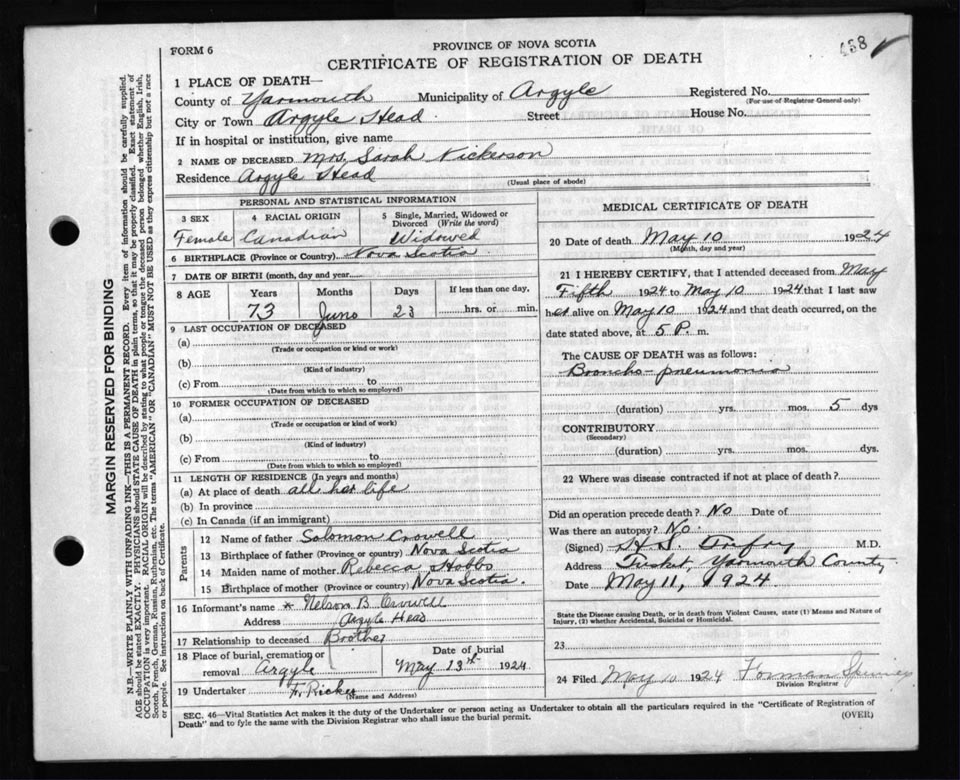 458
FORM 6
PROVINCE OF NOVA SCOTIA
CERTIFICATE OF REGISTRATION OF DEATH
1 PLACE OF DEATH—
County of Yarmouth Municipality of Argyle Registered No.
(For use of Registrar General only)
City or Town Argyle Head Street House No.
If in hospital or institution, give name
2 NAME OF DECEASED Mrs. Sarah Nickerson
Residence Argyle Head
(Usual place of abode)
PERSONAL AND STATISTICAL INFORMATION
3 SEX 4 RACIAL ORIGIN 5 Single, Married, Widowed or Divorced (Write the word)
Female Canadian Widowed
6 BIRTHPLACE (Province or Country) Nova Scotia
7 DATE OF BIRTH (month, day and year)
8 AGE Years Months Days If less than one day.
73 23 hrs. or min.
9 LAST OCCUPATION OF DECEASED
(a)
(Trade or occupation or kind or work)
(b)
(Kind of industry)
(c) From to
(Date from which to which so employed)
10 FORMER OCCUPATION OF DECEASED
(a)
(Trade or occupation or kind of work)
(b)
(Kind of industry)
(c) From to
(Date from which to which so employed)
11 LENGTH OF RESIDENCE (In years and months)
(a) At place of death all her life
(b) In province
(c) In Canada (if an immigrant)
Parents
12 Name of father Solomon Crowell
13 Birthplace of father (Province or country) Nova Scotia
14 Maiden name of mother Rebecca Hobbs
15 Birthplace of mother (Province or country) Nova Scotia.
16 Informant's name Nelson B. Crowell
Address Argyle Head
17 Relationship to deceased Brother
18 Place of burial, cremation or removal Argyle
Date of burial
May 13th 1924
19 Undertaker F. Ricker
(Name and Address)
MEDICAL CERTIFICATE OF DEATH
20 Date of death May 10 1924
(Month, day and year)
21 I HEREBY CERTIFY, that I attended deceased from May
Fifth 1924 to May 10 1924 that I last saw
her alive on May 10 1924 and that death occurred, on the
date stated above, at 5 P. m.
The CAUSE OF DEATH was as follows:
Broncho-pneumonia
(duration) yrs. mos. 5 dys
CONTRIBUTORY
(Secondary)
(duration) yrs. mos. dys.
22 Where was disease contracted if not at place of death?
Did an operation precede death? No Date of
Was there an autopsy? No.
(Signed) M.D.
Address Tusket, Yarmouth County
Date May 11, 1924
State the Disease causing Death, or in death from Violent Causes, state (1) Means and Nature of
Injury, (2) whether Accidental, Suicidal or Homicidal.
23
24 Filed May 10 1924 Forman
Division Registrar
SEC. 46—Vital Statistics Act makes it the duty of the Undertaker or person acting as Undertaker to obtain all the particulars required in the "Certificate of Registration of
Death" and to fyle the same with the Division Registrar who shall issue the burial permit.
(OVER)
MARGIN RESERVED FOR BINDING
N.B.—WRITE PLAINLY WITH UNFADING INK—THIS IS A PERMANENT RECORD. Every item of information should be carefully supplied.
AGE should be stated EXACTLY. PHYSICIANS should STATE CAUSE OF DEATH in plain terms, so that it may be properly classified. Exact statement of
OCCUPATION is very important. RACIAL ORIGIN will be described by stating to what people or tongue the deceased person belonged whether English, Irish,
Scotch, French, German, Russian, Ruthenian, etc. The terms "AMERICAN" OR "CANADIAN" MUST NOT BE USED as they express citizenship but not a race
or people. See instructions on back of Certificate.